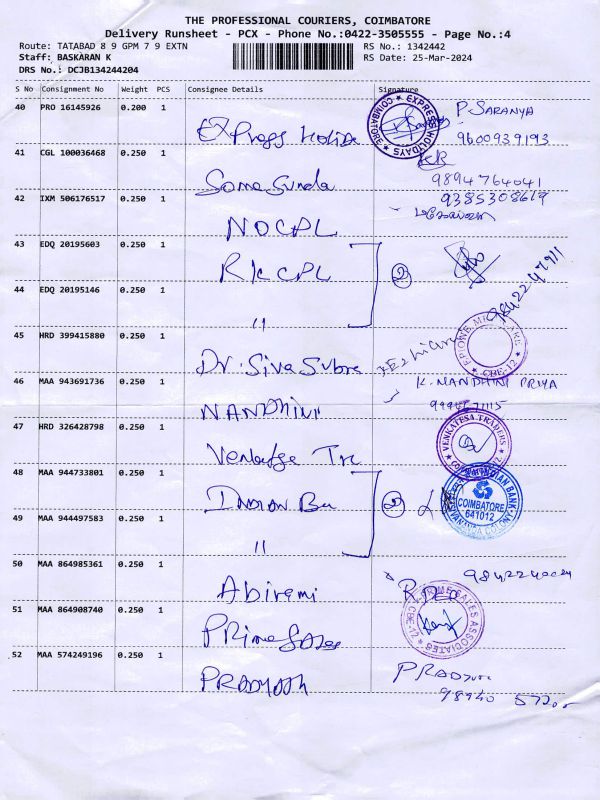 THE PROFESSIONAL COURIERS, COIMBATORE
Delivery Runsheet - PCX - Phone No.:0422-3505555 - Page No.:4
Route: TATABAD 8 9 GPM 7 9 EXTN RS No.: 1342442
Staff: BASKARAN K RS Date: 25-Mar-2024
DRS No.: DCJB134244204
S No Consignment No Weight PCS Consignee Details Signature
40 PRO 16145926 0.200 1 P.SARANYA
EXPRESS HOLIDAYS COIMBATORE
9600939193
41 CGL 100036468 0.250 1
9894764041
42 IXM 506176517 0.250 1 9385308619
NOCPL
43 EDQ 20195603 0.250 1
RKCPL 2
44 EDQ 20195146 0.250 1
"
45 HRD 399415880 0.250 1
Dr. Siva Subra CBE-12
46 MAA 943691736 0.250 1 K. NANDHINI PRIYA
NANDHINI
47 HRD 326428798 0.250 1
VENKATESA TRADERS
48 MAA 944733801 0.250 1
INDIAN BANK
COIMBATORE
641012
49 MAA 944497583 0.250 1
"
50 MAA 864985361 0.250 1
Abirami
51 MAA 864908740 0.250 1
PRime Sales SALES ASSOCIATES CBE-12
52 MAA 574249196 0.250 1
98940